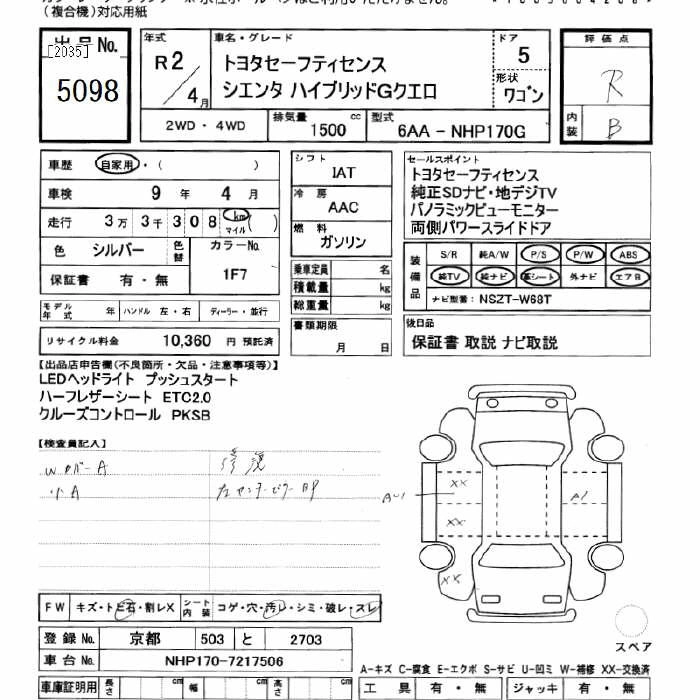 (複合機)対応用紙
出品No.
[2035]
5098
年式
R2/4月
車名・グレード
トヨタセーフティセンス
シエンタ ハイブリッドGクエロ
ドア
5
形状
ワゴン
評価点
R
内装
B
2WD・4WD
排気量
1500 cc
型式
6AA-NHP170G
車歴 自家用・( )
車検 9年 4月
走行 3万3千308 km マイル ( )
色 シルバー 色替 カラーNo. 1F7
保証書 有・無
モデル年式 年 ハンドル 左・右 ディーラー・並行
リサイクル料金 10,360 円 預託済
シフト
IAT
冷房
AAC
燃料
ガソリン
乗車定員 名
積載量 kg
総重量 kg
書類期限
月 日
セールスポイント
トヨタセーフティセンス
純正SDナビ・地デジTV
パノラミックビューモニター
両側パワースライドドア
装備品
S/R 純A/W P/S P/W ABS
純TV 純ナビ 革シート 外ナビ エアB
ナビ型番: NSZT-W68T
後日品
保証書 取説 ナビ取説
【出品店申告欄(不良箇所・欠品・注意事項等)】
LEDヘッドライト プッシュスタート
ハーフレザーシート ETC2.0
クルーズコントロール PKSB
【検査員記入】
小A
修復
左センターピラーBP
XX
XX
XX
A1
FW キズ・トビ石・割レX シート内装 コゲ・穴・汚レ・シミ・破レ・スレ
登録No. 京都 503 と 2703
車台No. NHP170-7217506
車庫証明用 長さ cm 幅 cm 高さ cm
スペア
A-キズ C-腐食 E-エクボ S-サビ U-凹ミ W-補修 XX-交換済
工具 有・無 ジャッキ 有・無